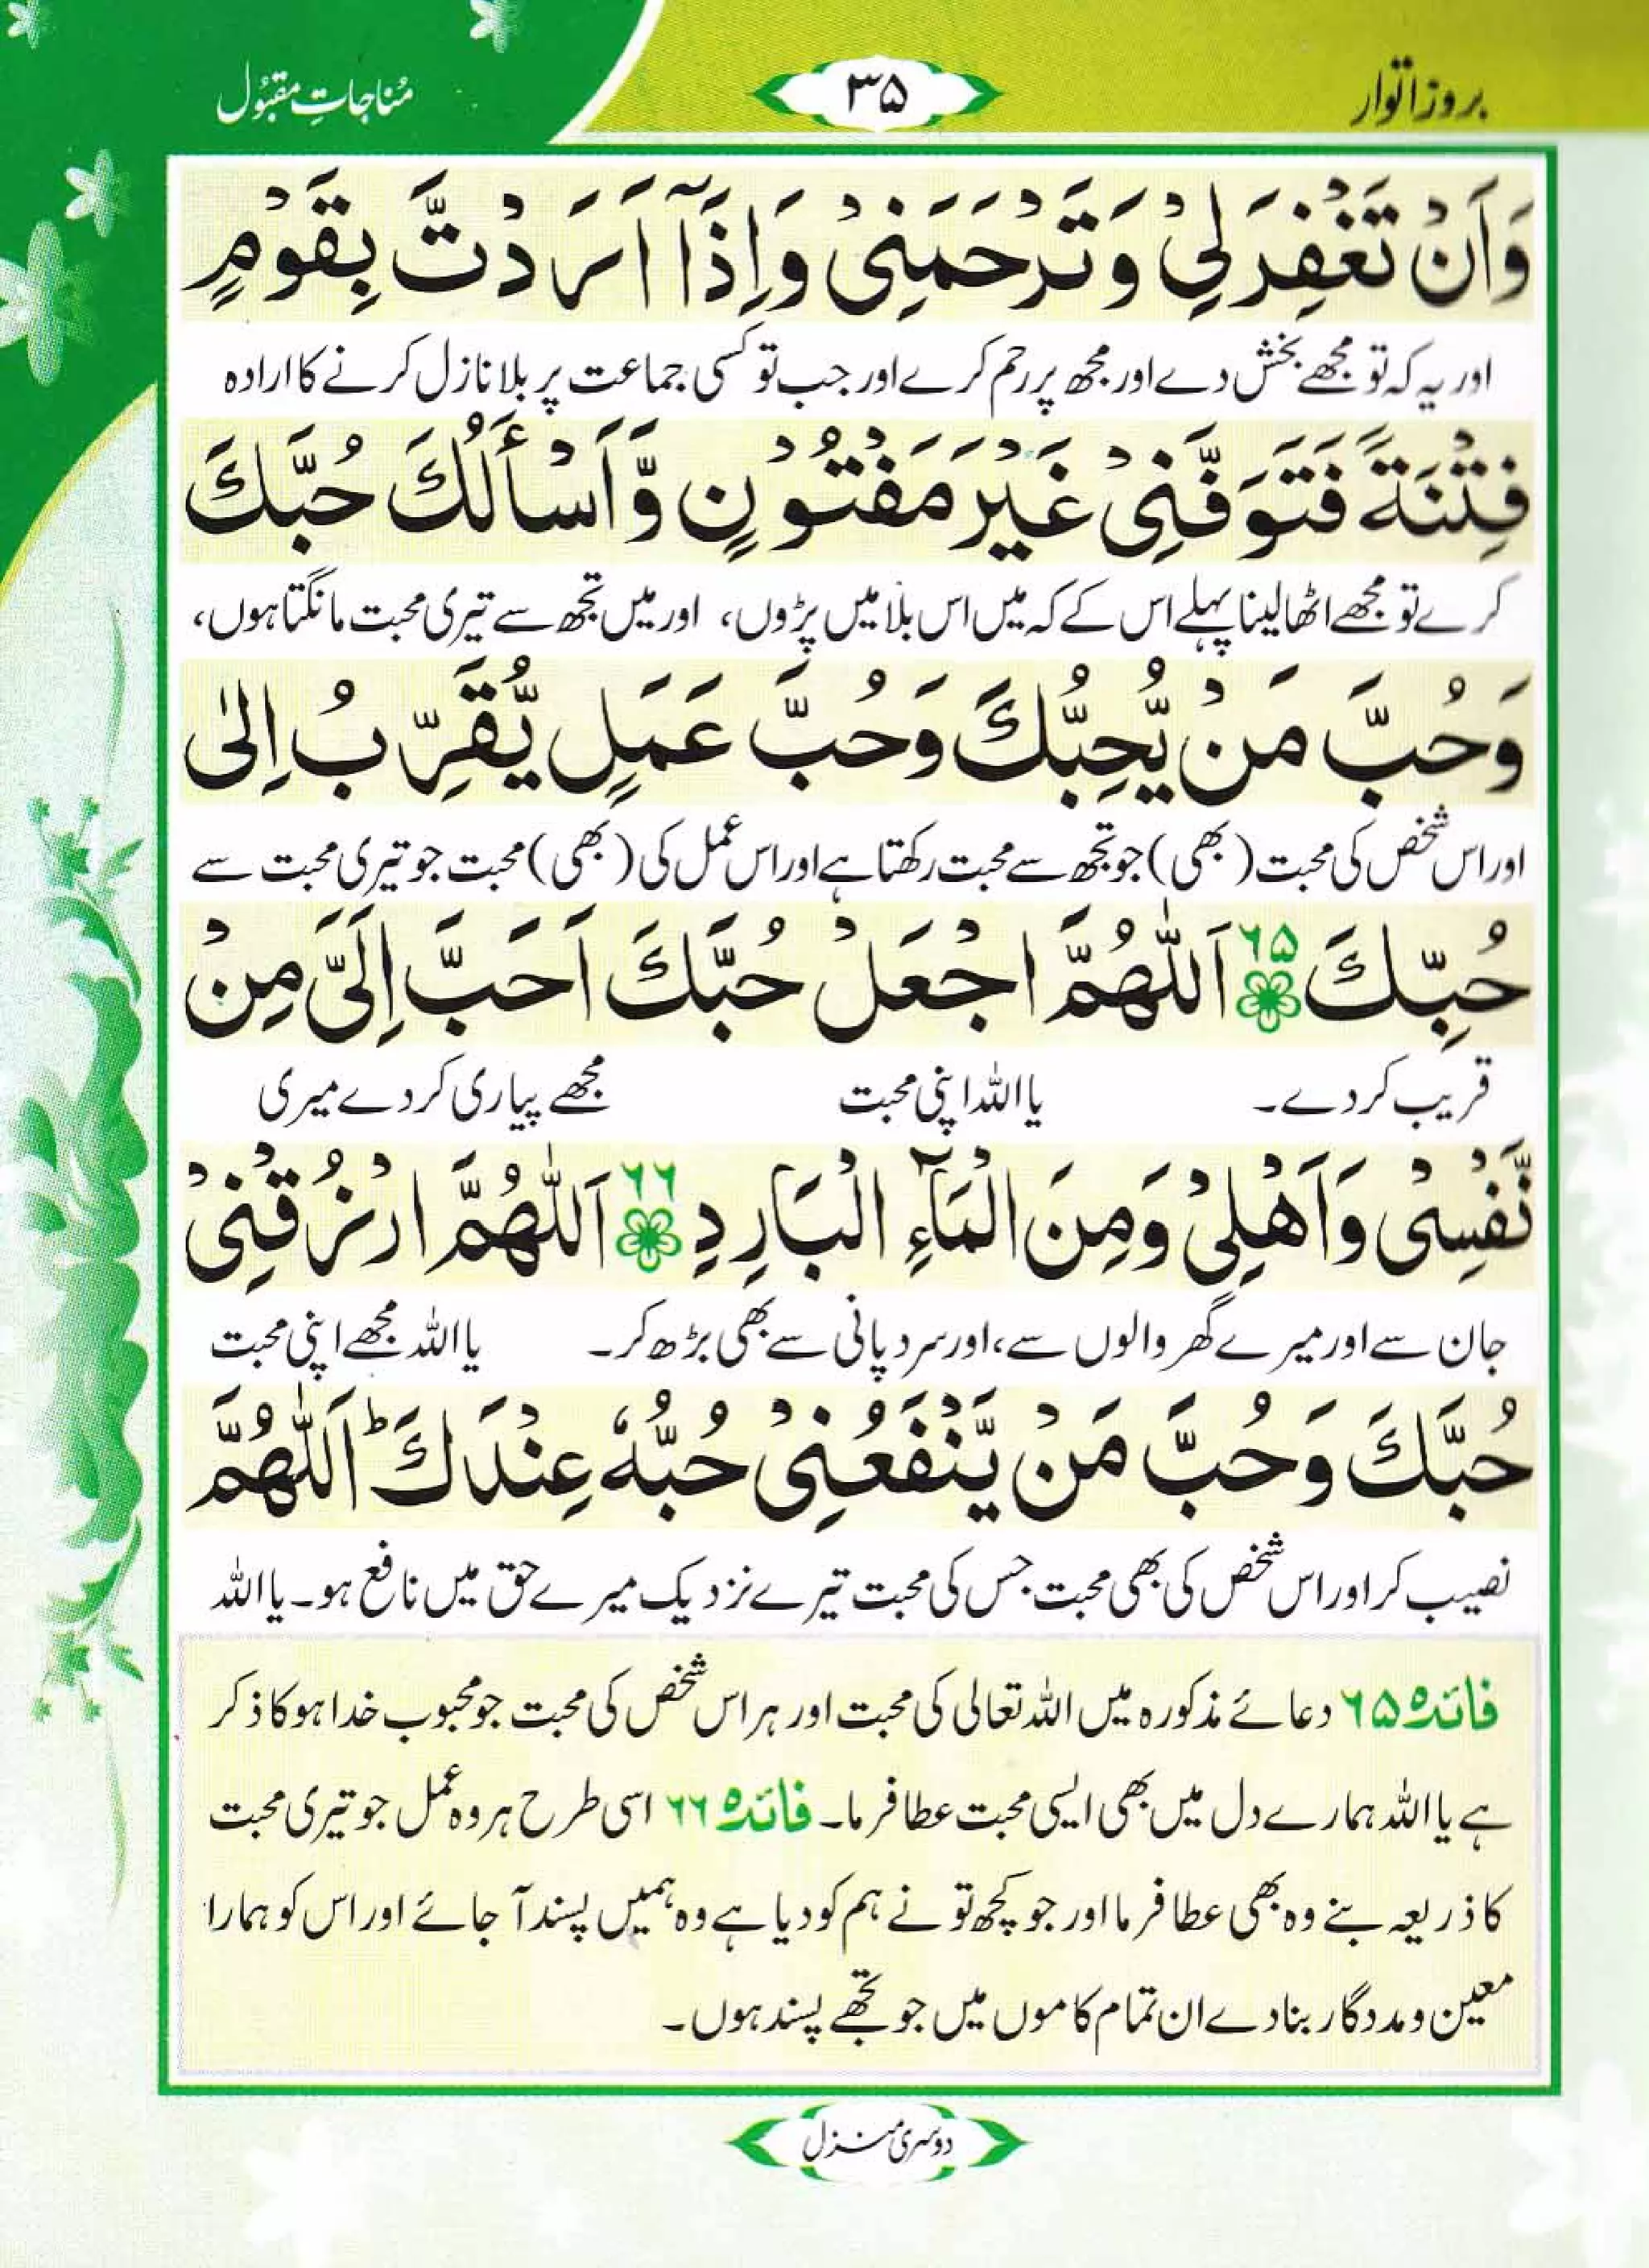 بروز اتوار
۳۵
مُناجاتِ مقبُول
وَاَنْ تَغْفِرَ لِيْ وَتَرْحَمَنِيْ وَاِذَآ اَرَدْتَّ بِقَوْمٍ
اور یہ کہ تو مجھے بخش دے اور مجھ پر رحم کرے اور جب تو کسی جماعت پر بلا نازل کرنے کا ارادہ
فِتْنَةً فَتَوَفَّنِيْ غَيْرَ مَفْتُوْنٍ وَّاَسْأَلُكَ حُبَّكَ
کرے تو مجھے اٹھا لینا پہلے اس کے کہ میں اس بلا میں پڑوں، اور میں تجھ سے تیری محبت مانگتا ہوں،
وَحُبَّ مَنْ يُّحِبُّكَ وَحُبَّ عَمَلٍ يُّقَرِّبُ اِلٰى
اور اس شخص کی محبت (بھی) جو تجھ سے محبت رکھتا ہے اور اس عمل کی (بھی) محبت جو تیری محبت سے
حُبِّكَ ۶۵ اَللّٰهُمَّ اجْعَلْ حُبَّكَ اَحَبَّ اِلَيَّ مِنْ
قریب کر دے۔ یا اللہ اپنی محبت مجھے پیاری کر دے میری
نَّفْسِيْ وَاَهْلِيْ وَمِنَ الْمَآءِ الْبَارِدِ ۶۶ اَللّٰهُمَّ ارْزُقْنِيْ
جان سے اور میرے گھر والوں سے، اور سرد پانی سے بھی بڑھ کر۔ یا اللہ مجھے اپنی محبت
حُبَّكَ وَحُبَّ مَنْ يَّنْفَعُنِيْ حُبُّهٗ عِنْدَكَ ؕ اَللّٰهُمَّ
نصیب کر اور اس شخص کی بھی محبت جس کی محبت تیرے نزدیک میرے حق میں نافع ہو۔ یا اللہ
فائدہ ۶۵ دعائے مذکورہ میں اللہ تعالی کی محبت اور ہر اس شخص کی محبت جو محبوب خدا ہو کا ذکر
ہے یا اللہ ہمارے دل میں بھی ایسی محبت عطا فرما۔ فائدہ ۶۶ اسی طرح ہر وہ عمل جو تیری محبت
کا ذریعہ بنے وہ بھی عطا فرما اور جو کچھ تو نے ہم کو دیا ہے وہ ہمیں پسند آ جائے اور اس کو ہمارا
معین و مددگار بنا دے ان تمام کاموں میں جو تجھے پسند ہوں۔
دوسری منزل